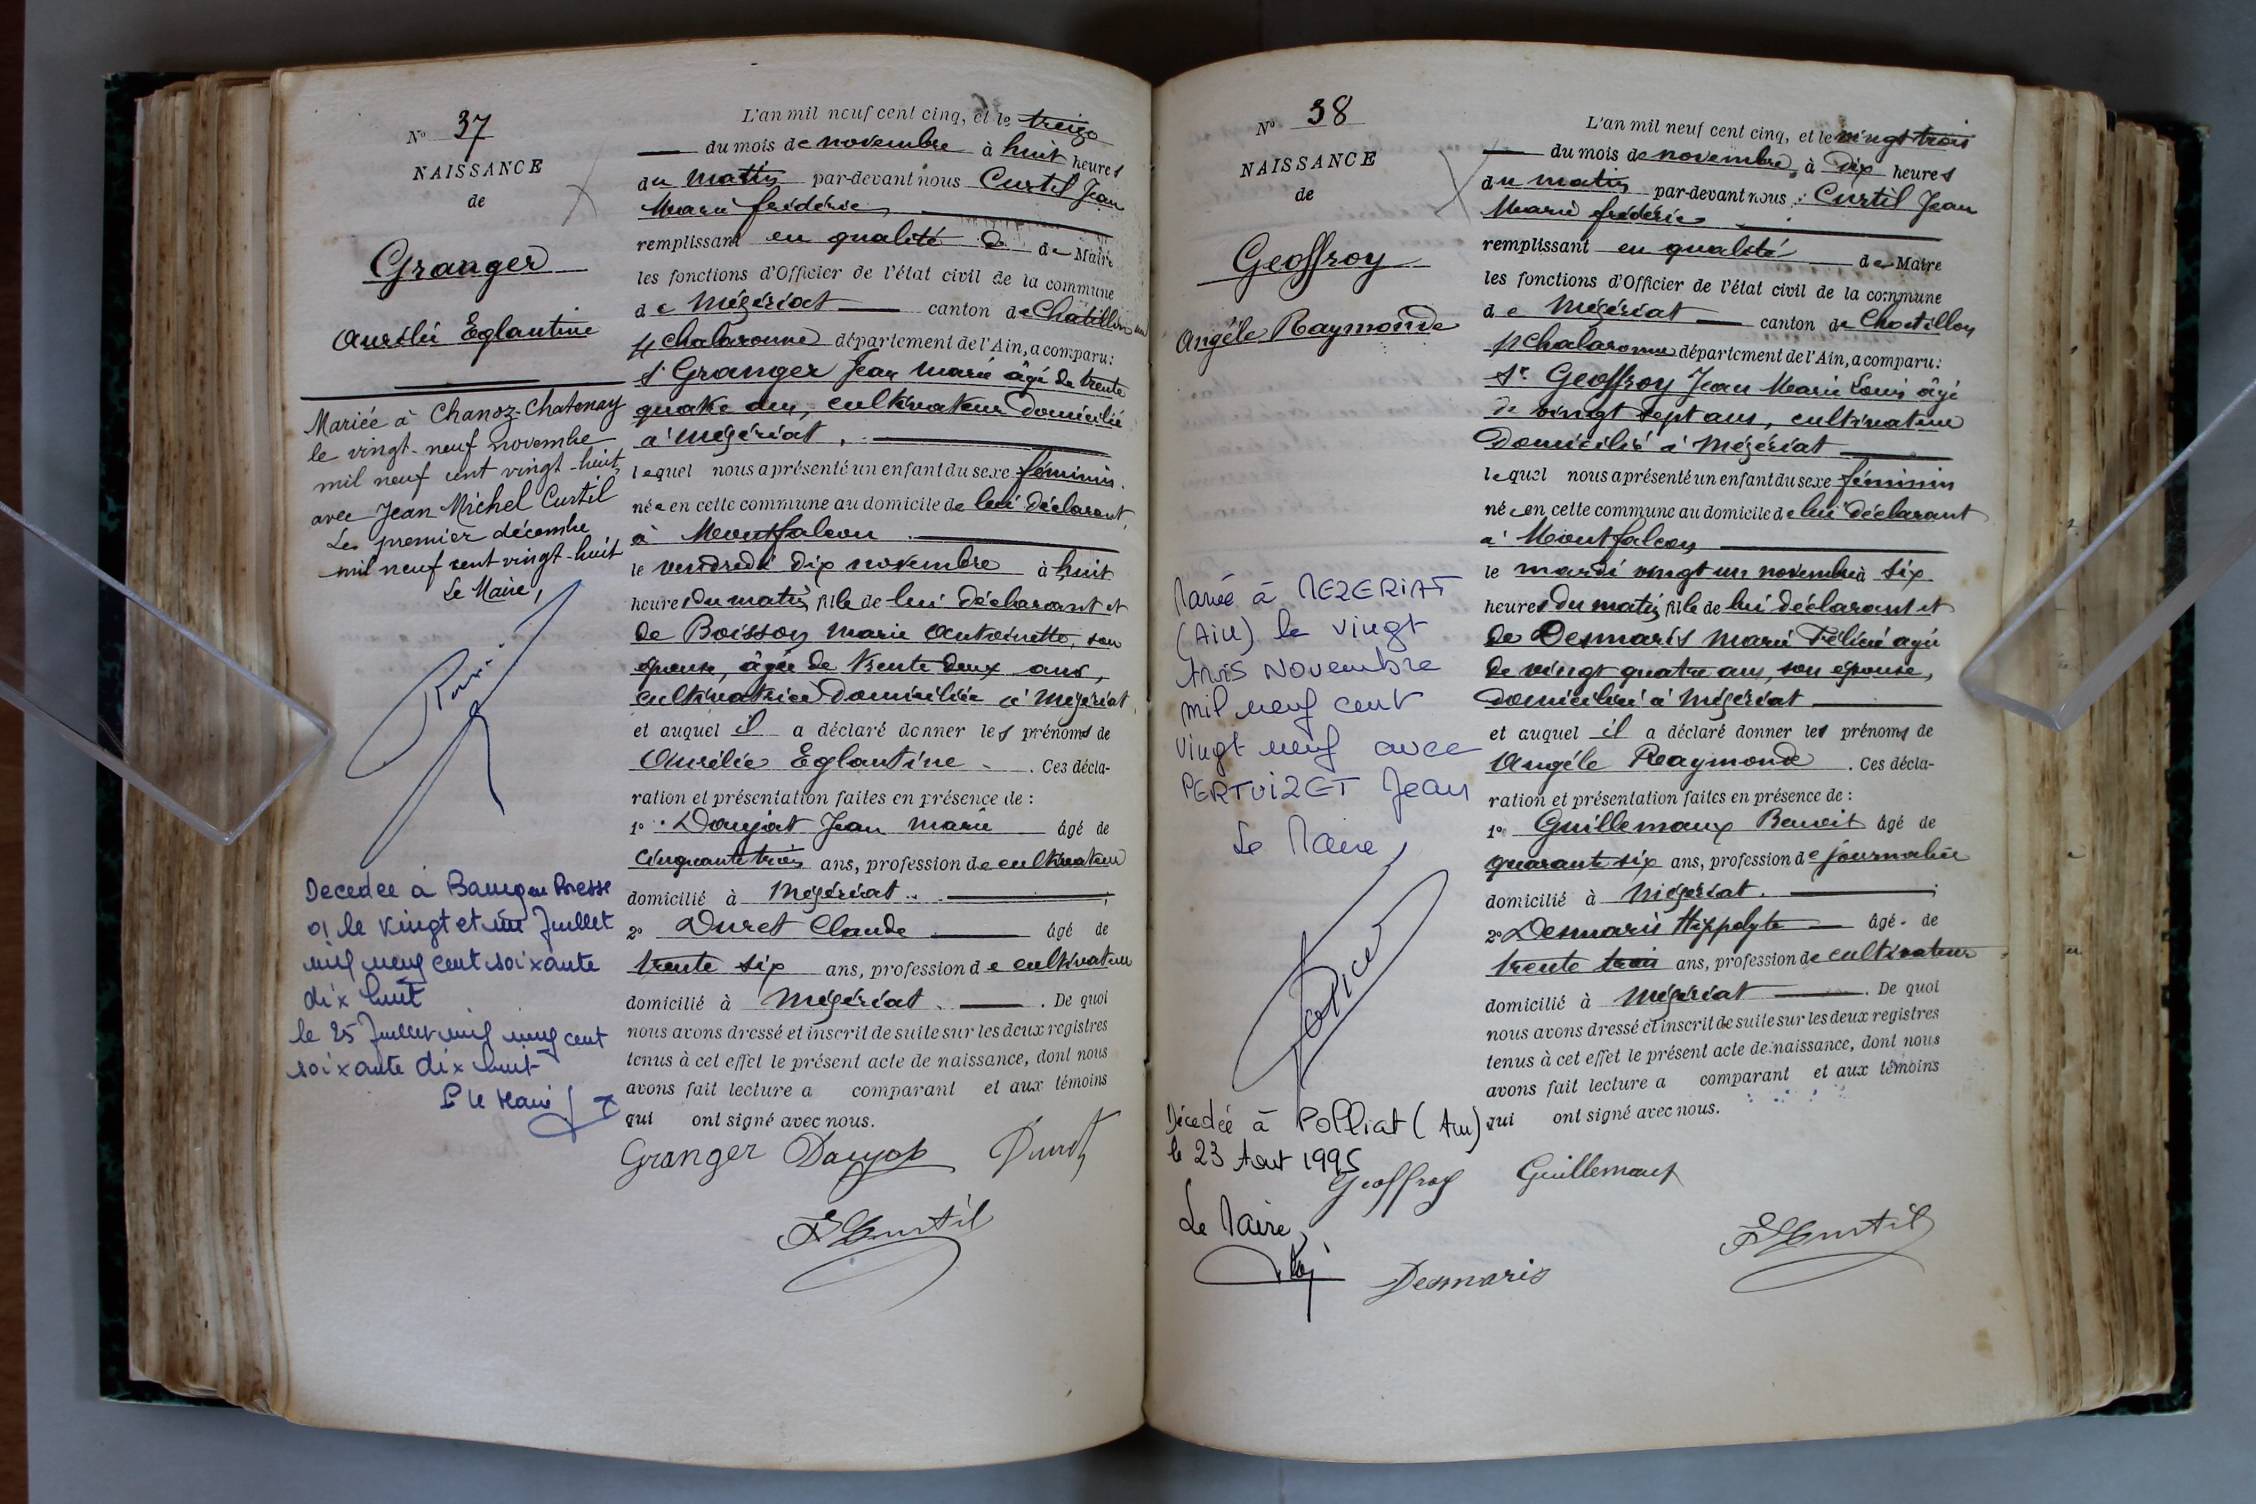 N° 37
NAISSANCE
de
Granger
Aurélie Eglantine
Mariée à Chanoz-Chatenay
le vingt-neuf novembre
mil neuf cent vingt-huit
avec Jean Michel Curtil
Le premier décembre
mil neuf cent vingt-huit
Le Maire,
Décédée à Bourg en Bresse
01 le vingt et un Juillet
mil neuf cent soixante
dix huit
le 25 Juillet mil neuf cent
soixante dix huit
P le Maire
L'an mil neuf cent cinq, et le treize
du mois de novembre à huit heures
du matin par-devant nous Curtil Jean
Marie frédéric
remplissant en qualité de Maire
les fonctions d'Officier de l'état civil de la commune
de Mézériat canton de Chatillon sur
Chalaronne département de l'Ain, a comparu:
Sr Granger Jean Marie âgé de trente
quatre ans, cultivateur domicilié
à Mézériat,
lequel nous a présenté un enfant du sexe féminin
née en cette commune au domicile de lui déclarant,
à Montfalcon
le vendredi dix novembre à huit
heures du matin fille de lui déclarant et
de Boisson Marie Antoinette, son
épouse, âgée de trente deux ans,
cultivatrice domiciliée à Mézériat,
et auquel il a déclaré donner les prénoms de
Aurélie Eglantine. Ces décla-
ration et présentation faites en présence de :
1° Doujat Jean Marie âgé de
cinquante trois ans, profession de cultivateur
domicilié à Mézériat ;
2° Duret Claude âgé de
trente six ans, profession de cultivateur
domicilié à Mézériat. De quoi
nous avons dressé et inscrit de suite sur les deux registres
tenus à cet effet le présent acte de naissance, dont nous
avons fait lecture a comparant et aux témoins
qui ont signé avec nous.
Granger Doujat Duret
F Curtil
N° 38
NAISSANCE
de
Geoffroy
Angéle Raymonde
Mariée à MEZERIAT
(Ain) le vingt
trois Novembre
mil neuf cent
vingt neuf avec
PERTUIZET Jean
Le Maire
Décédée à Polliat (Ain)
le 23 Aout 1995
Le Maire,
L'an mil neuf cent cinq, et le vingt trois
du mois de novembre, à dix heures
du matin par-devant nous Curtil Jean
Marie frédéric
remplissant en qualité de Maire
les fonctions d'Officier de l'état civil de la commune
de Mézériat canton de Chatillon
Chalaronne département de l'Ain, a comparu:
Sr Geoffroy Jean Marie Louis âgé
de vingt sept ans, cultivateur
domicilié à Mézériat
lequel nous a présenté un enfant du sexe féminin
née en cette commune au domicile de lui déclarant
à Montfalcon
le mardi vingt un novembre à six
heures du matin fille de lui déclarant et
de Desmaris Marie Félicie agée
de vingt quatre ans, son épouse,
domiciliée à Mézériat
et auquel il a déclaré donner les prénoms de
Angéle Raymonde. Ces décla-
ration et présentation faites en présence de :
1° Guillemaux Benoit âgé de
quarante six ans, profession de journalier
domicilié à Mézériat. ;
2° Desmaris Hippolyte âgé de
trente trois ans, profession de cultivateur
domicilié à Mézériat. De quoi
nous avons dressé et inscrit de suite sur les deux registres
tenus à cet effet le présent acte de naissance, dont nous
avons fait lecture a comparant et aux témoins
qui ont signé avec nous.
Geoffroy Guillemaux
F Curtil
Desmaris